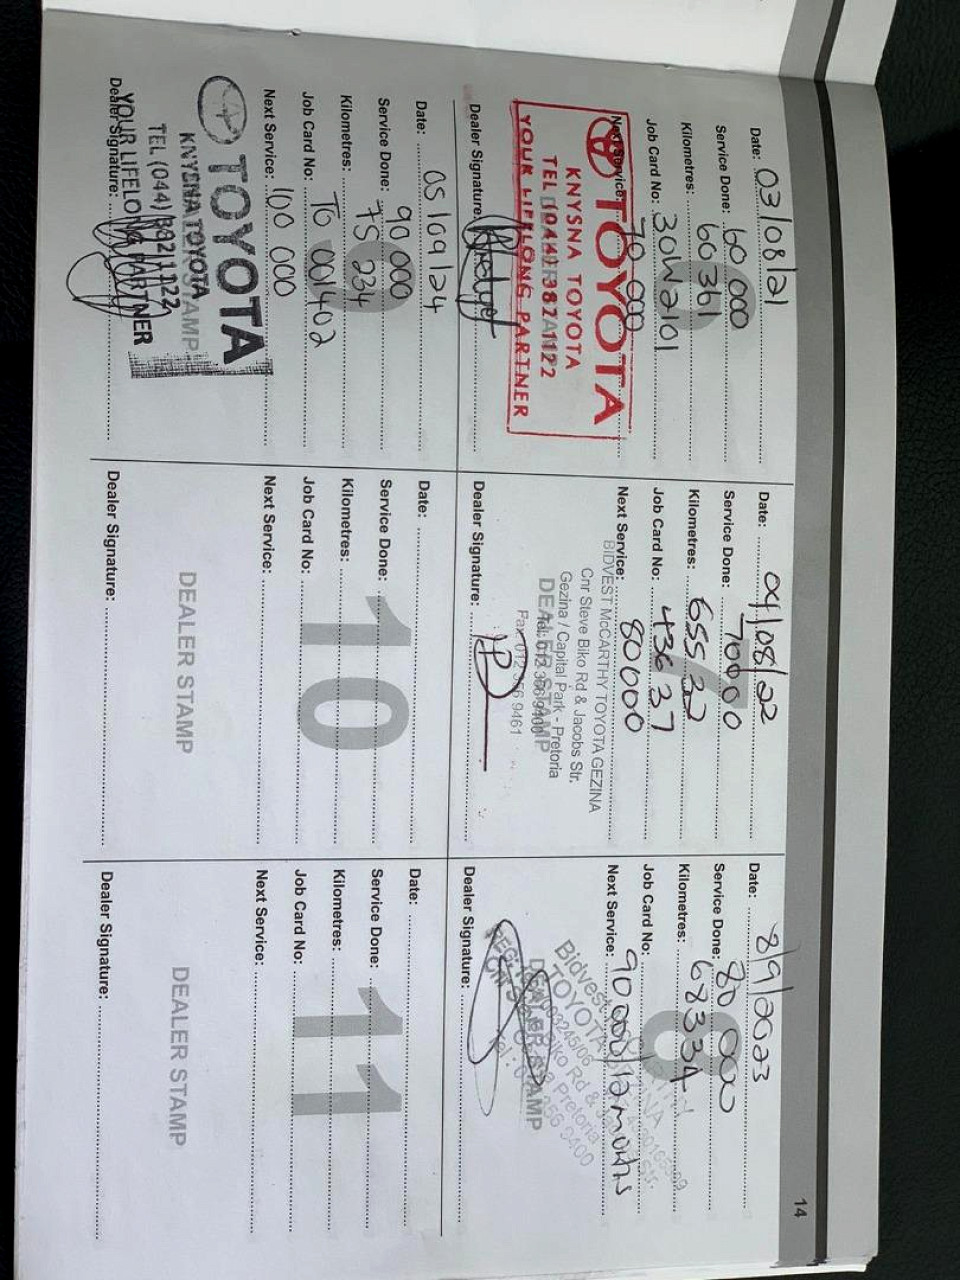 14
Date: 03/08/21
Service Done: 60 000
Kilometres: 60361
Job Card No: 30W2101
Next Service: 70 000
TOYOTA
KNYSNA TOYOTA
TEL (044) 382 1122
YOUR LIFELONG PARTNER
Dealer Signature:
Date: 04/08/22
Service Done: 70000
Kilometres: 65532
Job Card No: 43637
Next Service: 80000
BIDVEST McCARTHY TOYOTA GEZINA
Cnr Steve Biko Rd & Jacobs Str.
Gezina / Capital Park - Pretoria
DEALER STAMP
Dealer Signature:
8
Date: 8/9/2023
Service Done: 80 000
Kilometres: 68334
Job Card No:
Next Service: 90 000/12 months
Bidvest
TOYOTA
DEALER STAMP
Dealer Signature:
9
Date: 05/09/24
Service Done: 90 000
Kilometres: 75 234
Job Card No: TO 001402
Next Service: 100 000
TOYOTA
KNYSNA TOYOTA
DEALER STAMP
TEL (044) 382 1122
YOUR LIFELONG PARTNER
Dealer Signature:
10
Date:
Service Done:
Kilometres:
Job Card No:
Next Service:
DEALER STAMP
Dealer Signature:
11
Date:
Service Done:
Kilometres:
Job Card No:
Next Service:
DEALER STAMP
Dealer Signature: